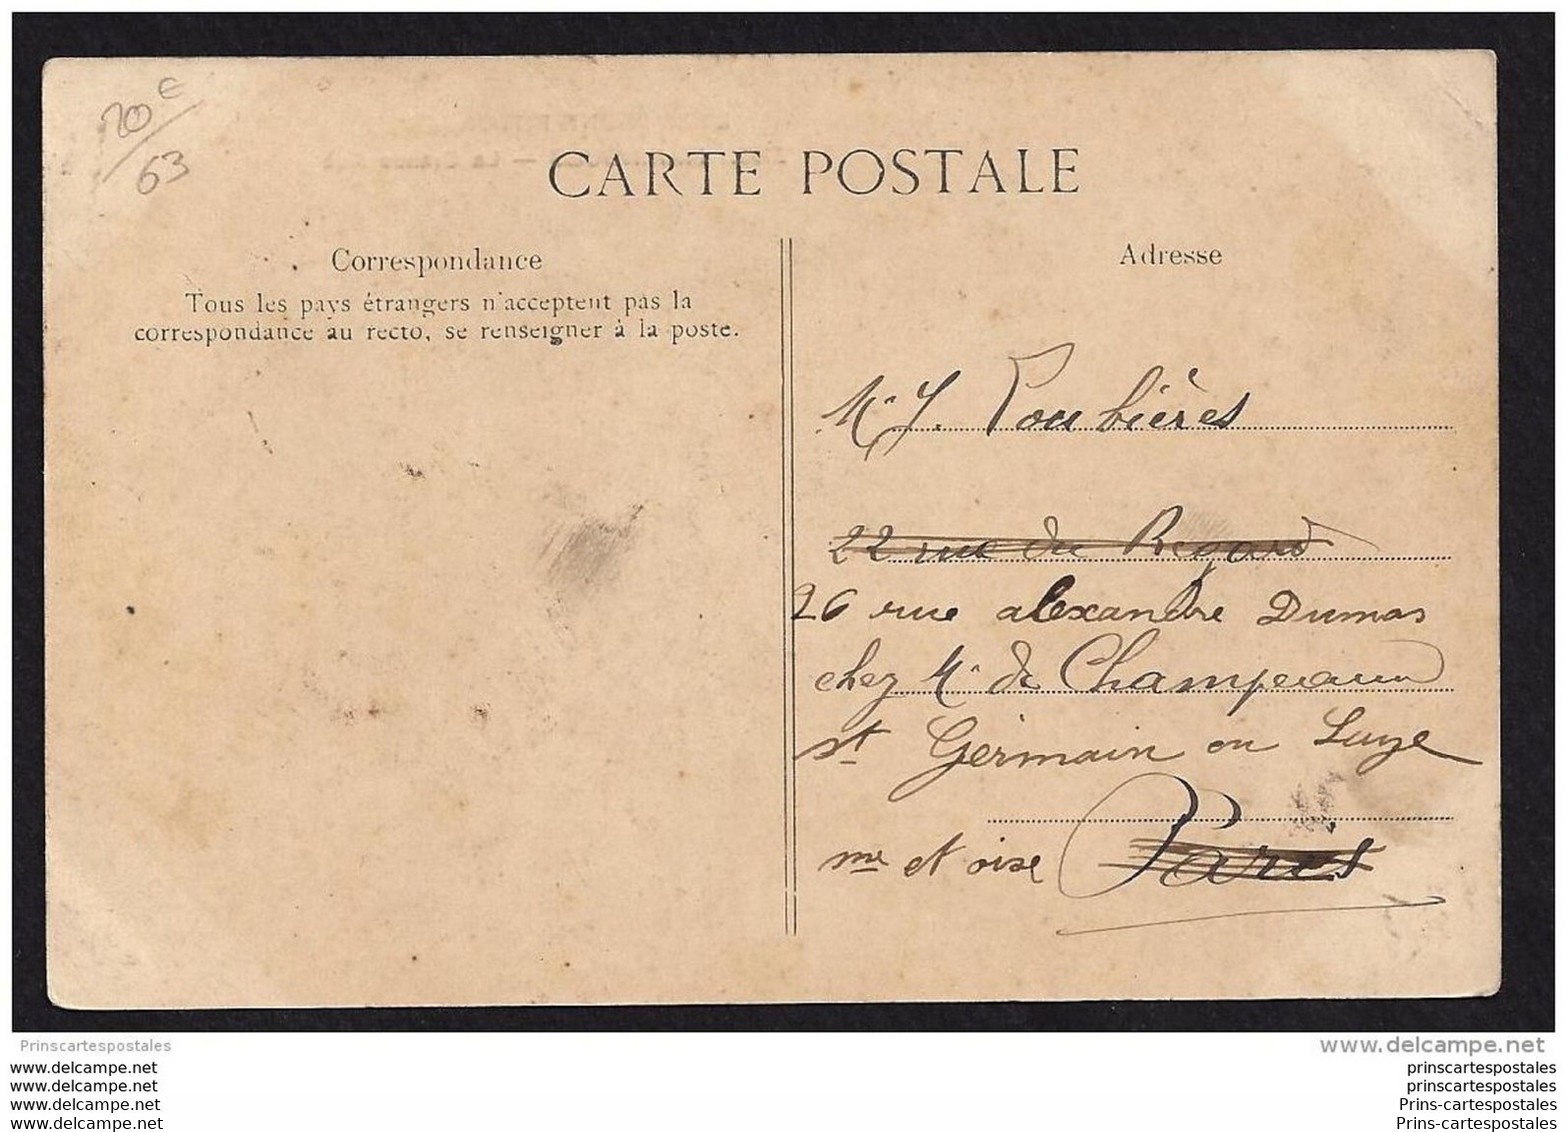 20€
63
CARTE POSTALE
Correspondance
Tous les pays étrangers n'acceptent pas la
correspondance au recto, se renseigner à la poste.
Adresse
Mr J. Poubières
22 rue du Regard
26 rue alexandre Dumas
chez Mr de Champeaux
st Germain en Laye
me et oise Paris
Prinscartespostales
www.delcampe.net
www.delcampe.net
www.delcampe.net
www.delcampe.net
www.delcampe.net
prinscartespostales
prinscartespostales
Prins-cartespostales
Prins-cartespostales